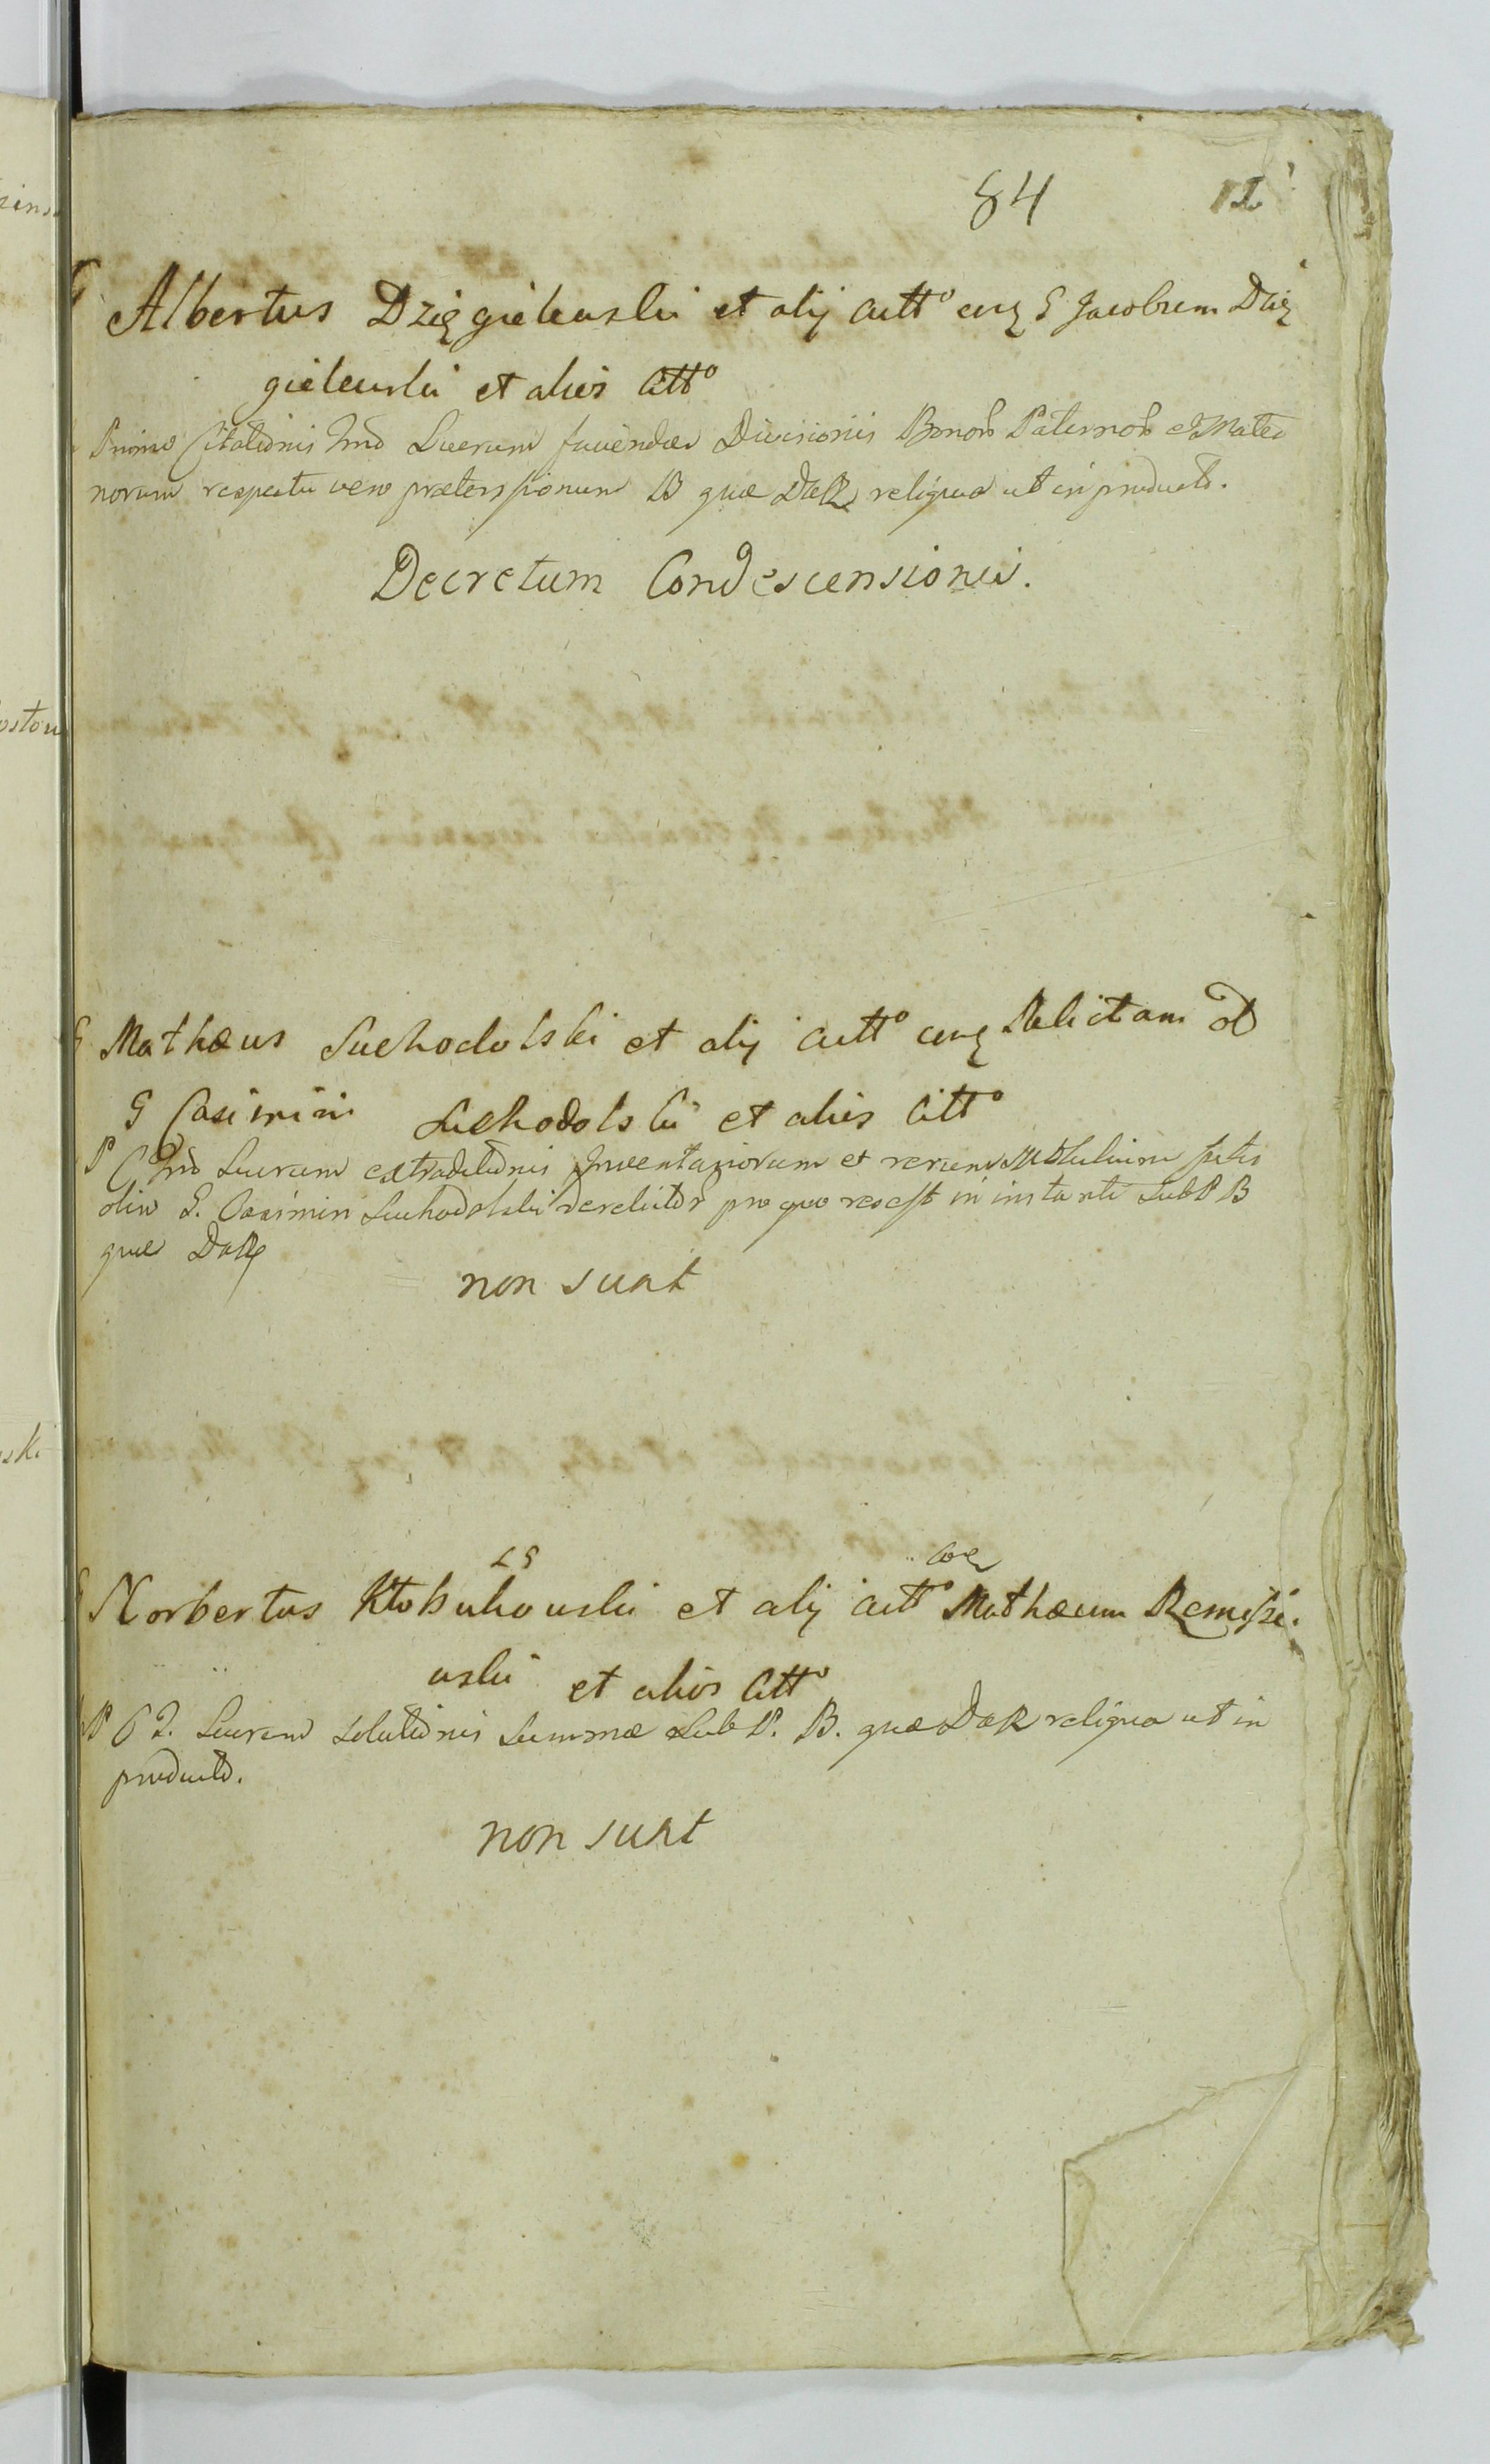 84 12
G Albertus Dzięgielewski et alij Actt° cūq G Jacobum Dzię
gielewski et alios Citt°
Primo Citatōnis Lucrum faciendae Divisionis Bonoƌ Paternoƌ et Mater
norum respectu vero praetenssionum B quae DaR reliqua ut in producto.
Decretum Condescensionis.
G Mathaeus Suchodolski et alij Actt° cūq Relictam ol
G Casimiri Suchodolski et alios Citt°
P C Lucrum extraditōnis Inventariorum et rerum
olim G. Casimiri Suchodolski pro quo res est in instanti Sub P B
quae DaR
non sunt
G Norbertus Kłobukowski et alij Actt° Mathaeum
wski et alios Citt°
P C Lucrum solutōnis Summae Sub P. B. quae DaR reliqua ut in
producto.
non sunt